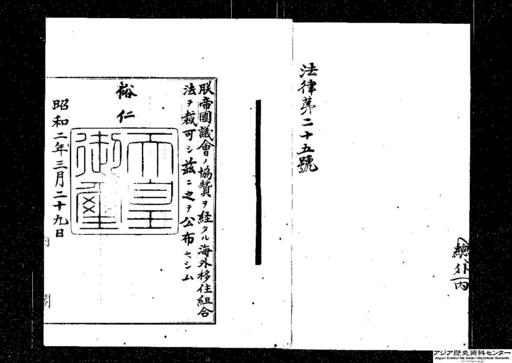 法律第二十五號
朕帝國議會ノ協贊ヲ経タル海外移住組合
法ヲ裁可シ茲ニ之ヲ公布セシム
裕仁
天皇
御璽
昭和二年三月二十九日
アジア歴史資料センター
Japan Center for Asian Historical Records